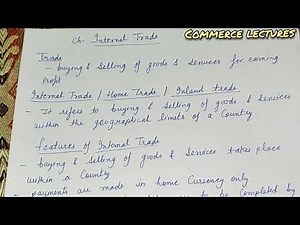 COMMERCE LECTURES
Ch. Internal Trade
Trade
- buying & selling of goods & services for earning
Profit
Internal Trade / Home Trade / Inland trade
- It refers to buying & selling of goods & services
within the geographical limits of a Country
features of Internal Trade
- buying & selling of goods & Services takes place
within a Country
- payments are made in home Currency only
to be Completed by